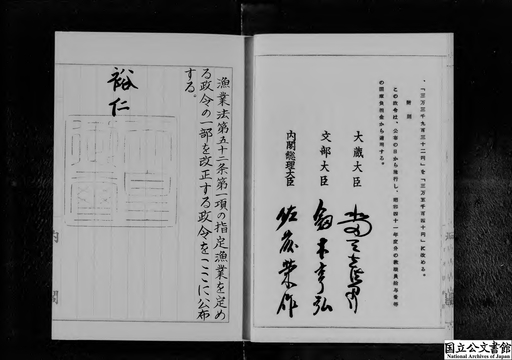 、「三万三千九百三十二円」を「三万五千百四十円」に改める。
附則
この政令は、公布の日から施行し、昭和四十一年度分の
の国庫負担金から適用する。
大蔵大臣
文部大臣
内閣総理大臣 佐藤榮作
漁業法第五十二条第一項の指定漁業を定め
る政令の一部を改正する政令をここに公布
する。
裕仁
国立公文書館
National Archives of Japan